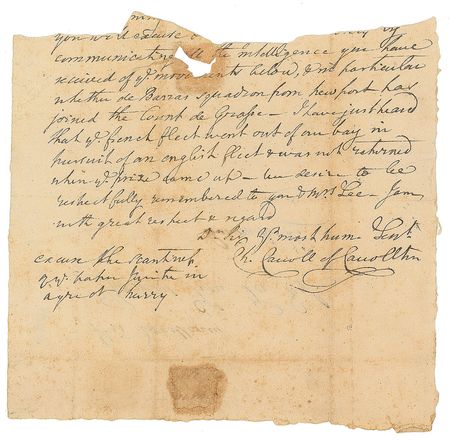 you will excuse
communicating all the intelligence you have
received of ye movements below, & in particular
whether de Barras squadron from Newport has
joined the Count de Grasse – I have just heard
that ye french fleet went out of our bay in
pursuit of an english fleet & was not returned
when ye prize came up – we desire to be
respectfully remembered to you & Mrs Lee – I am
with great respect & regard
D. Sir Yr. most hum. Servt.
Ch. Carroll of Carrollton
excuse the scantiness
of ye paper I write in
a great hurry